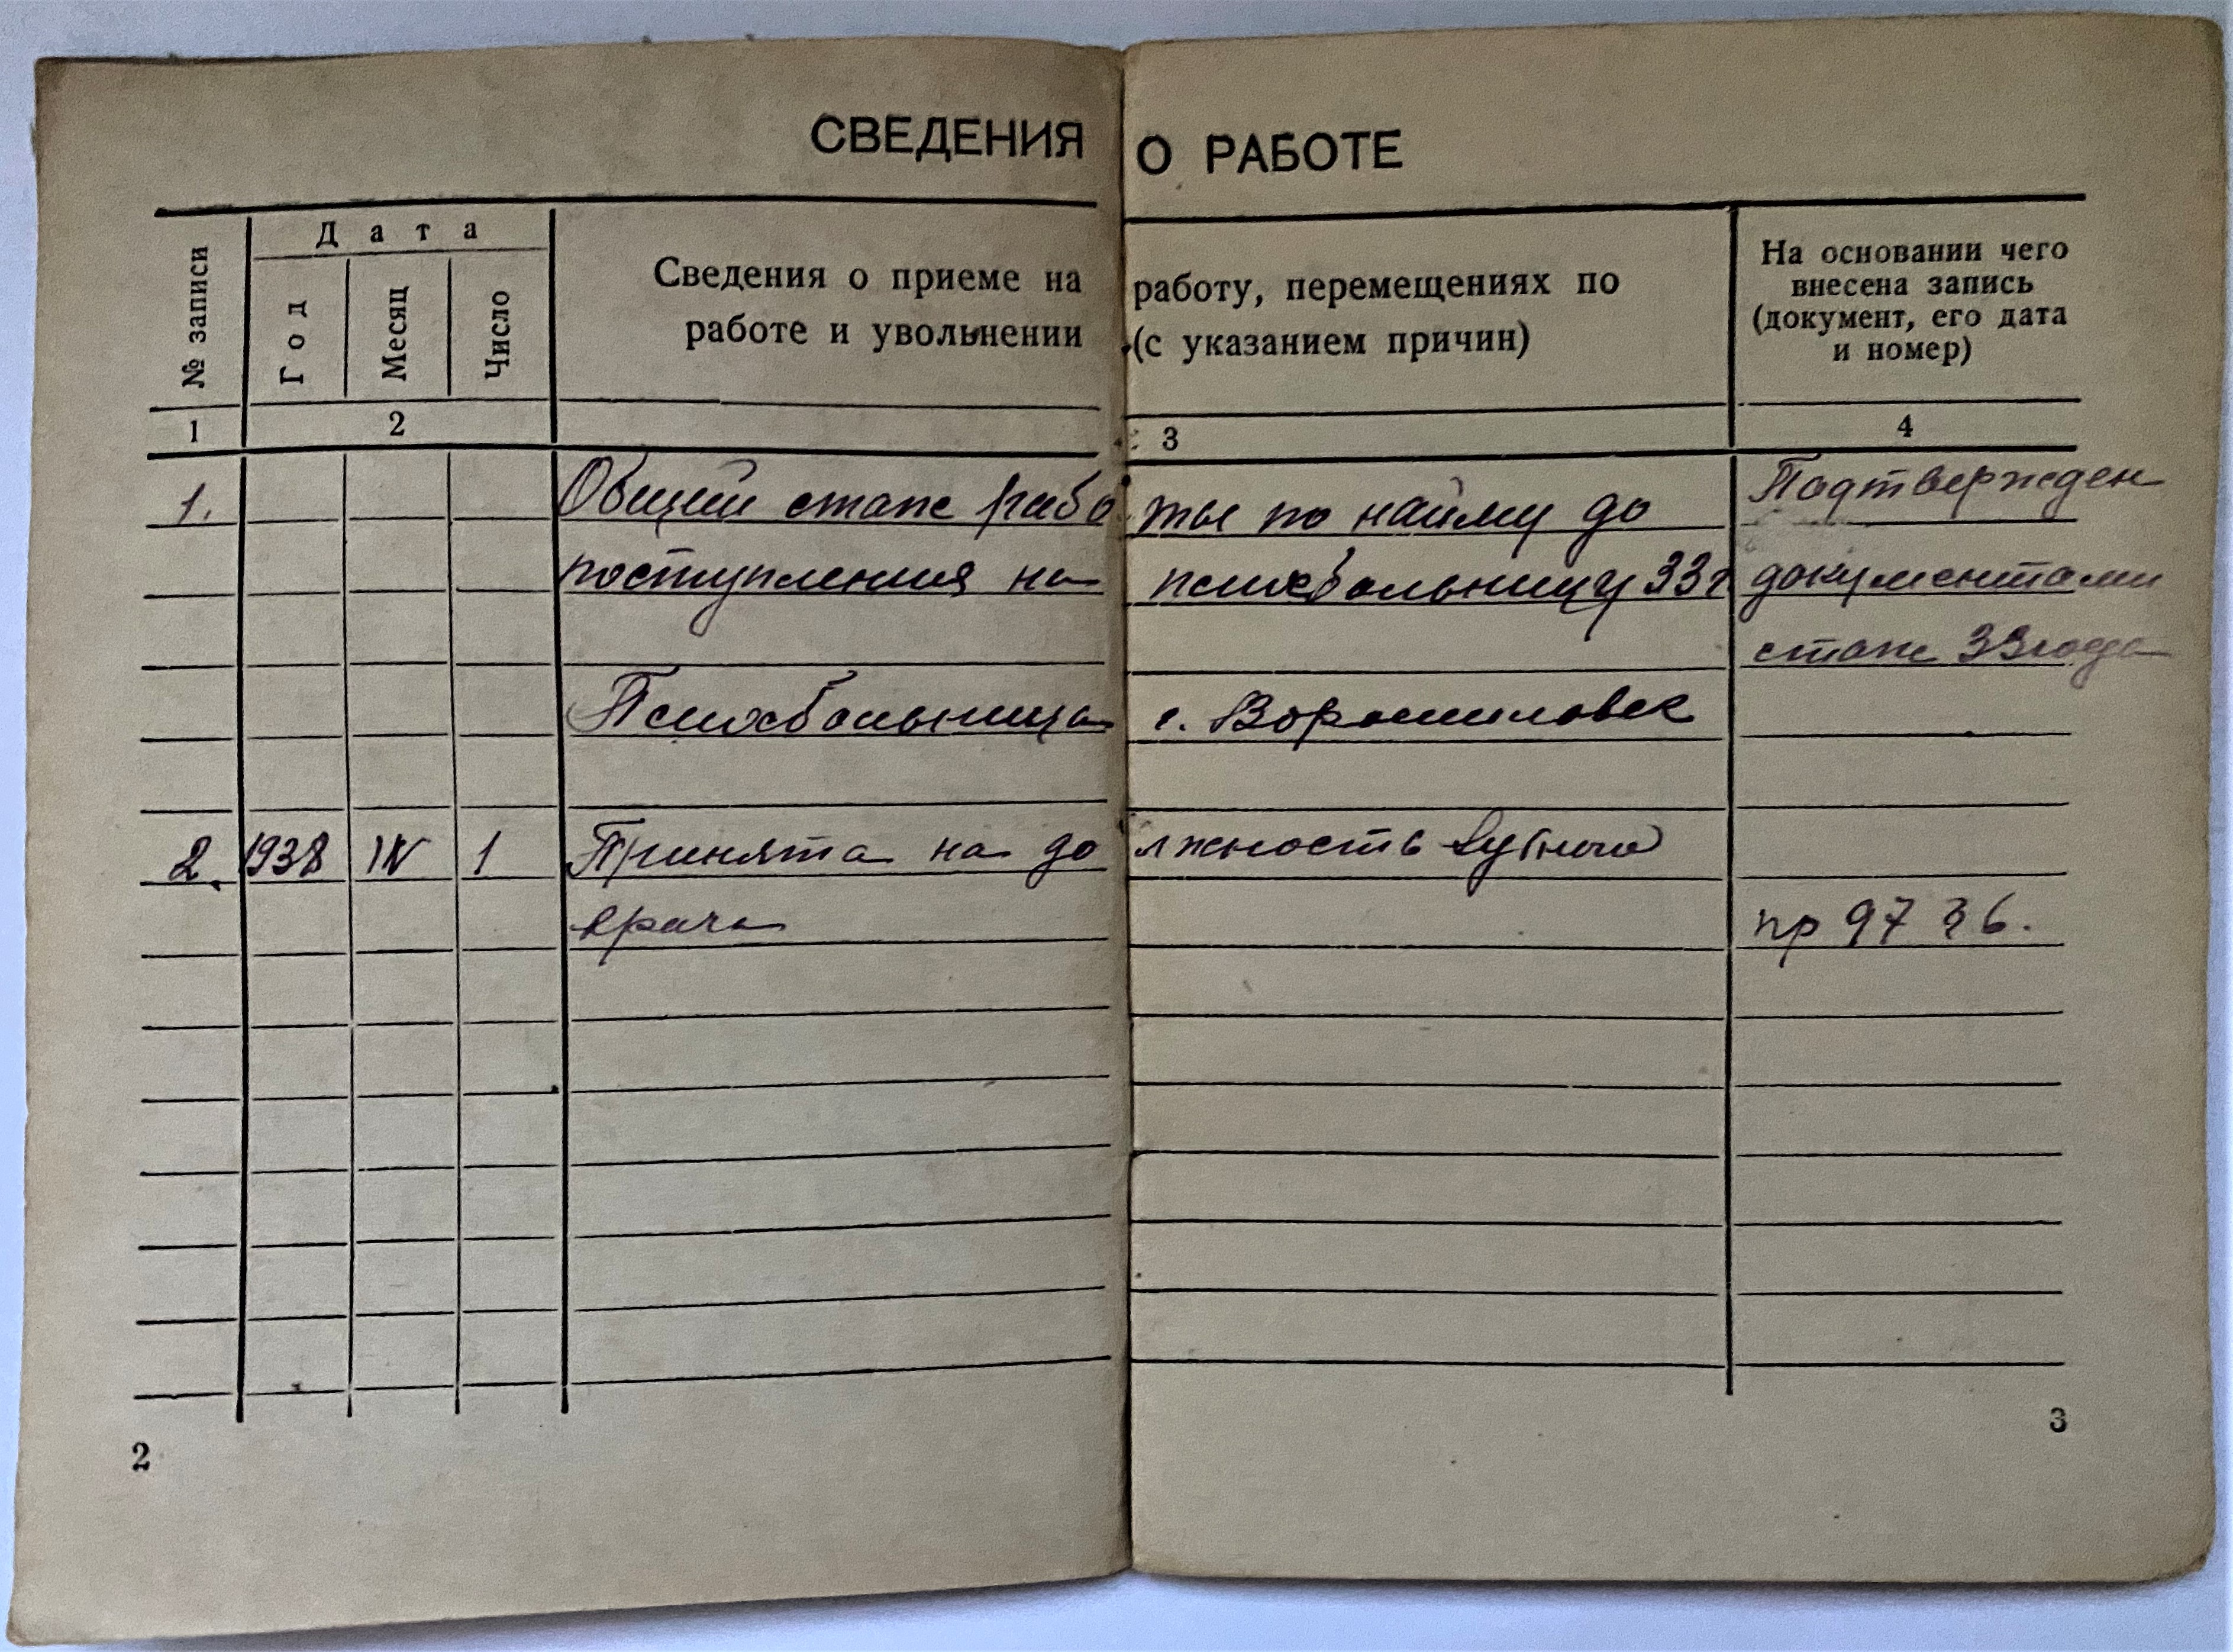 СВЕДЕНИЯ О РАБОТЕ
№ записи
Дата
Год
Месяц
Число
Сведения о приеме на работу, перемещениях по
работе и увольнении (с указанием причин)
На основании чего
внесена запись
(документ, его дата
и номер)
1 2 3 4
1. Общий стаж работы по найму до Подтвержден
поступления на психбольницу 33г документами
стаж 33 года
Психбольница г. Ворошиловск
2. 1938 IV 1 Принята на должность зубного
врача пр 97
2
3